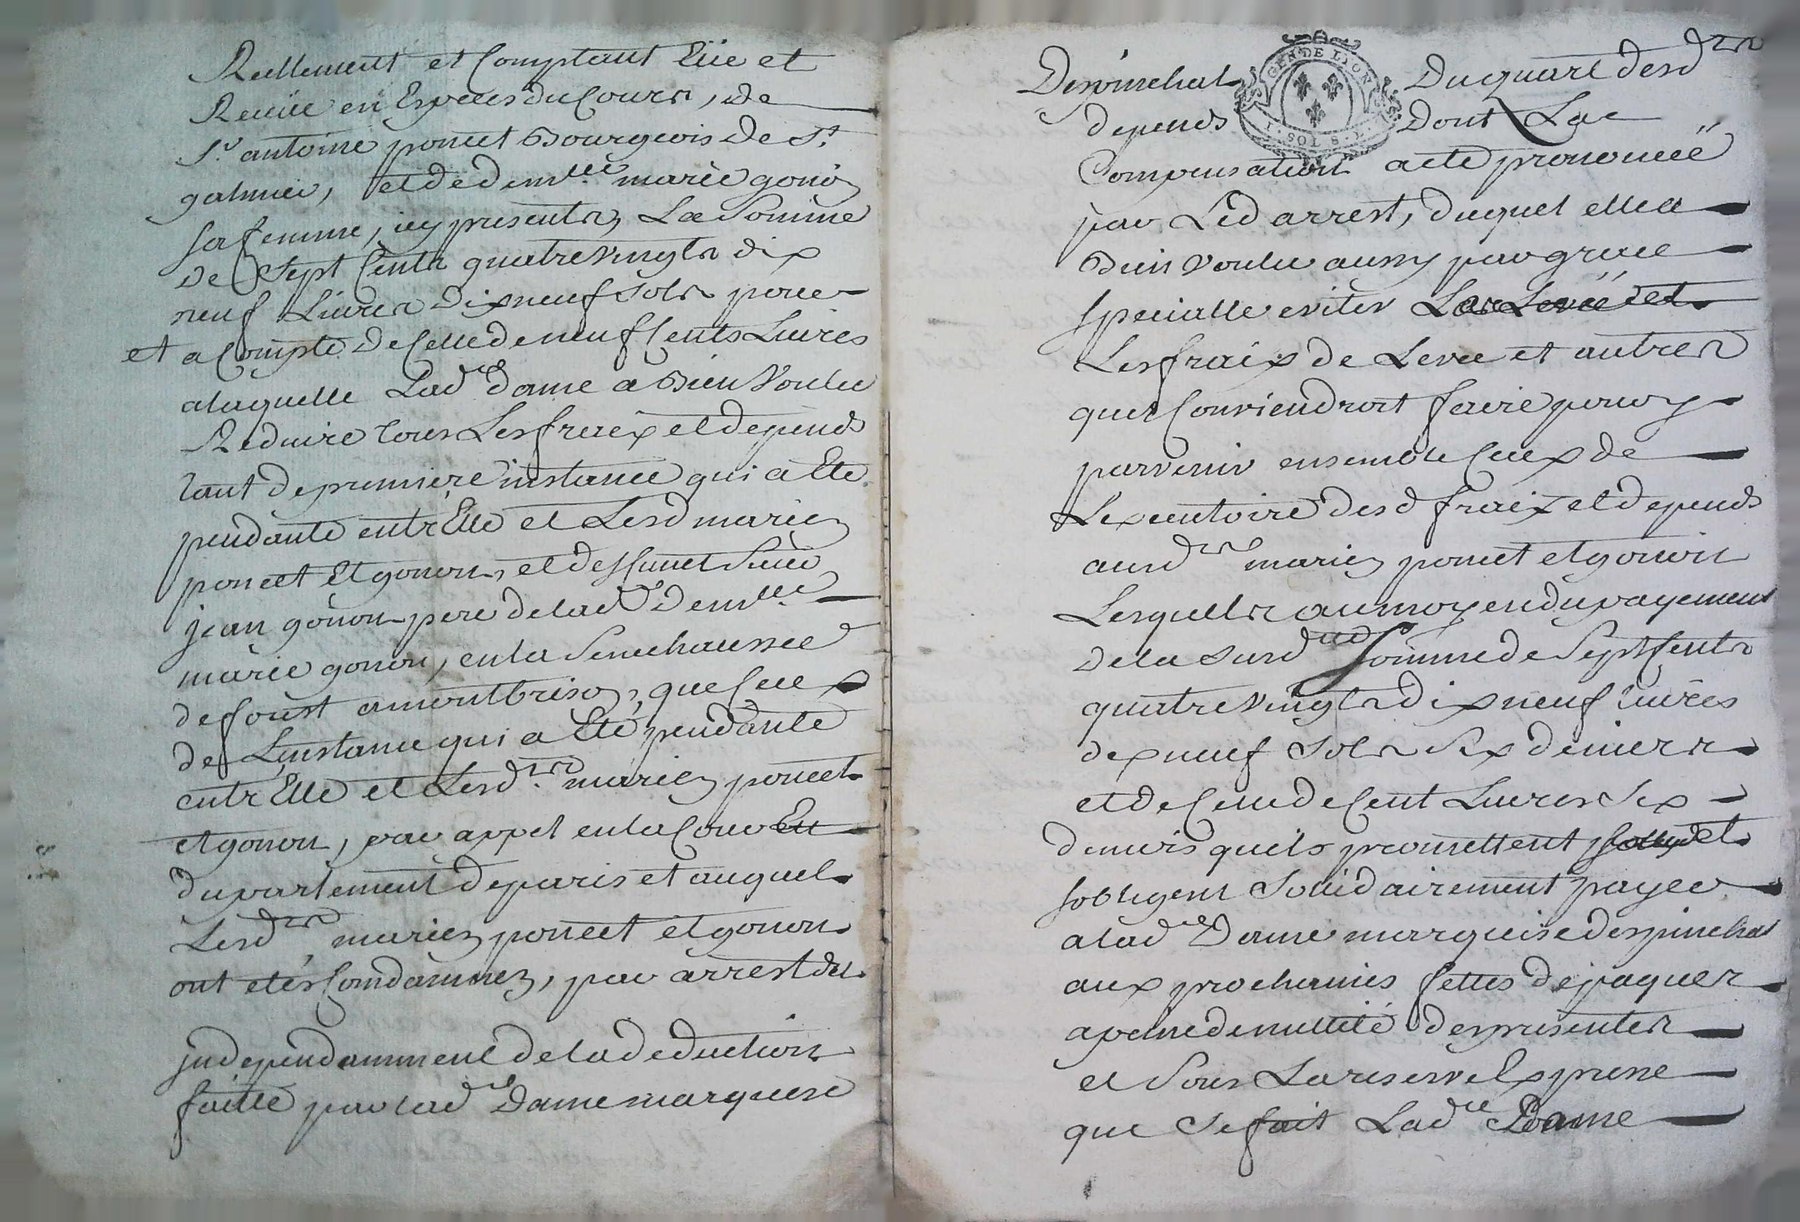 Reellement et Comptant Eüe et
Recüe en Especes du Cours, de
Sr. antoine poncet Bourgeois de St.
galmier, et de demlle. marie gonon
sa femme, icy presents, La Somme
de Sept Cents quatre vingts dix
neuf Livres dix neuf sols pour
et a Compte de Celle de neuf Cents Livres
a laquelle Lade. dame a bien Voulu
Reduire tous Les fraix et depends
tant de premiere instance qui a Eté
pendante entr'Elle et Lesd mariez
poncet Et gonon, et deffunct Sieur
jean gonon pere de lade. demlle.
marie gonon, en la Senechaussée
de forest a montbrison, que Ceux
de L'instance qui a Eté pendante
entr'Elle et Lesds. mariez poncet
et gonon, par appel en la Cour
du parlement de paris et auquel
Lesds mariez poncet et gonon
ont etés Condamnez, par arrest du
independamment de la deduction
faitte par lade Dame marquise
Despinchal Du quart desds
depends Dont La
Compensation a eté prononcéé
par Led arrest, duquel elle a
bien voulu aussy par grace
specialle eviter La Levéé et
Les fraix de Levee et autres
quil Conviendroit faire pour y
parvenir ensemble Ceux de
L'executoire desd fraix et depends
ausds mariez poncet et gonon
Lesquels au moyen du payement
de la susd Somme de Sept Cents
quatre vingts dix neuf livres
dix neuf sols Six deniers
et de Celle de Cent Livres Six
deniers quils promettent et
sobligent Solidairement payer
a lade Dame marquise despinchal
aux prochaines fettes de paques
a peine de nullité des presentes
et Sous La reserve Expresse
que Se fait Lade Dame
GEN DE LYON